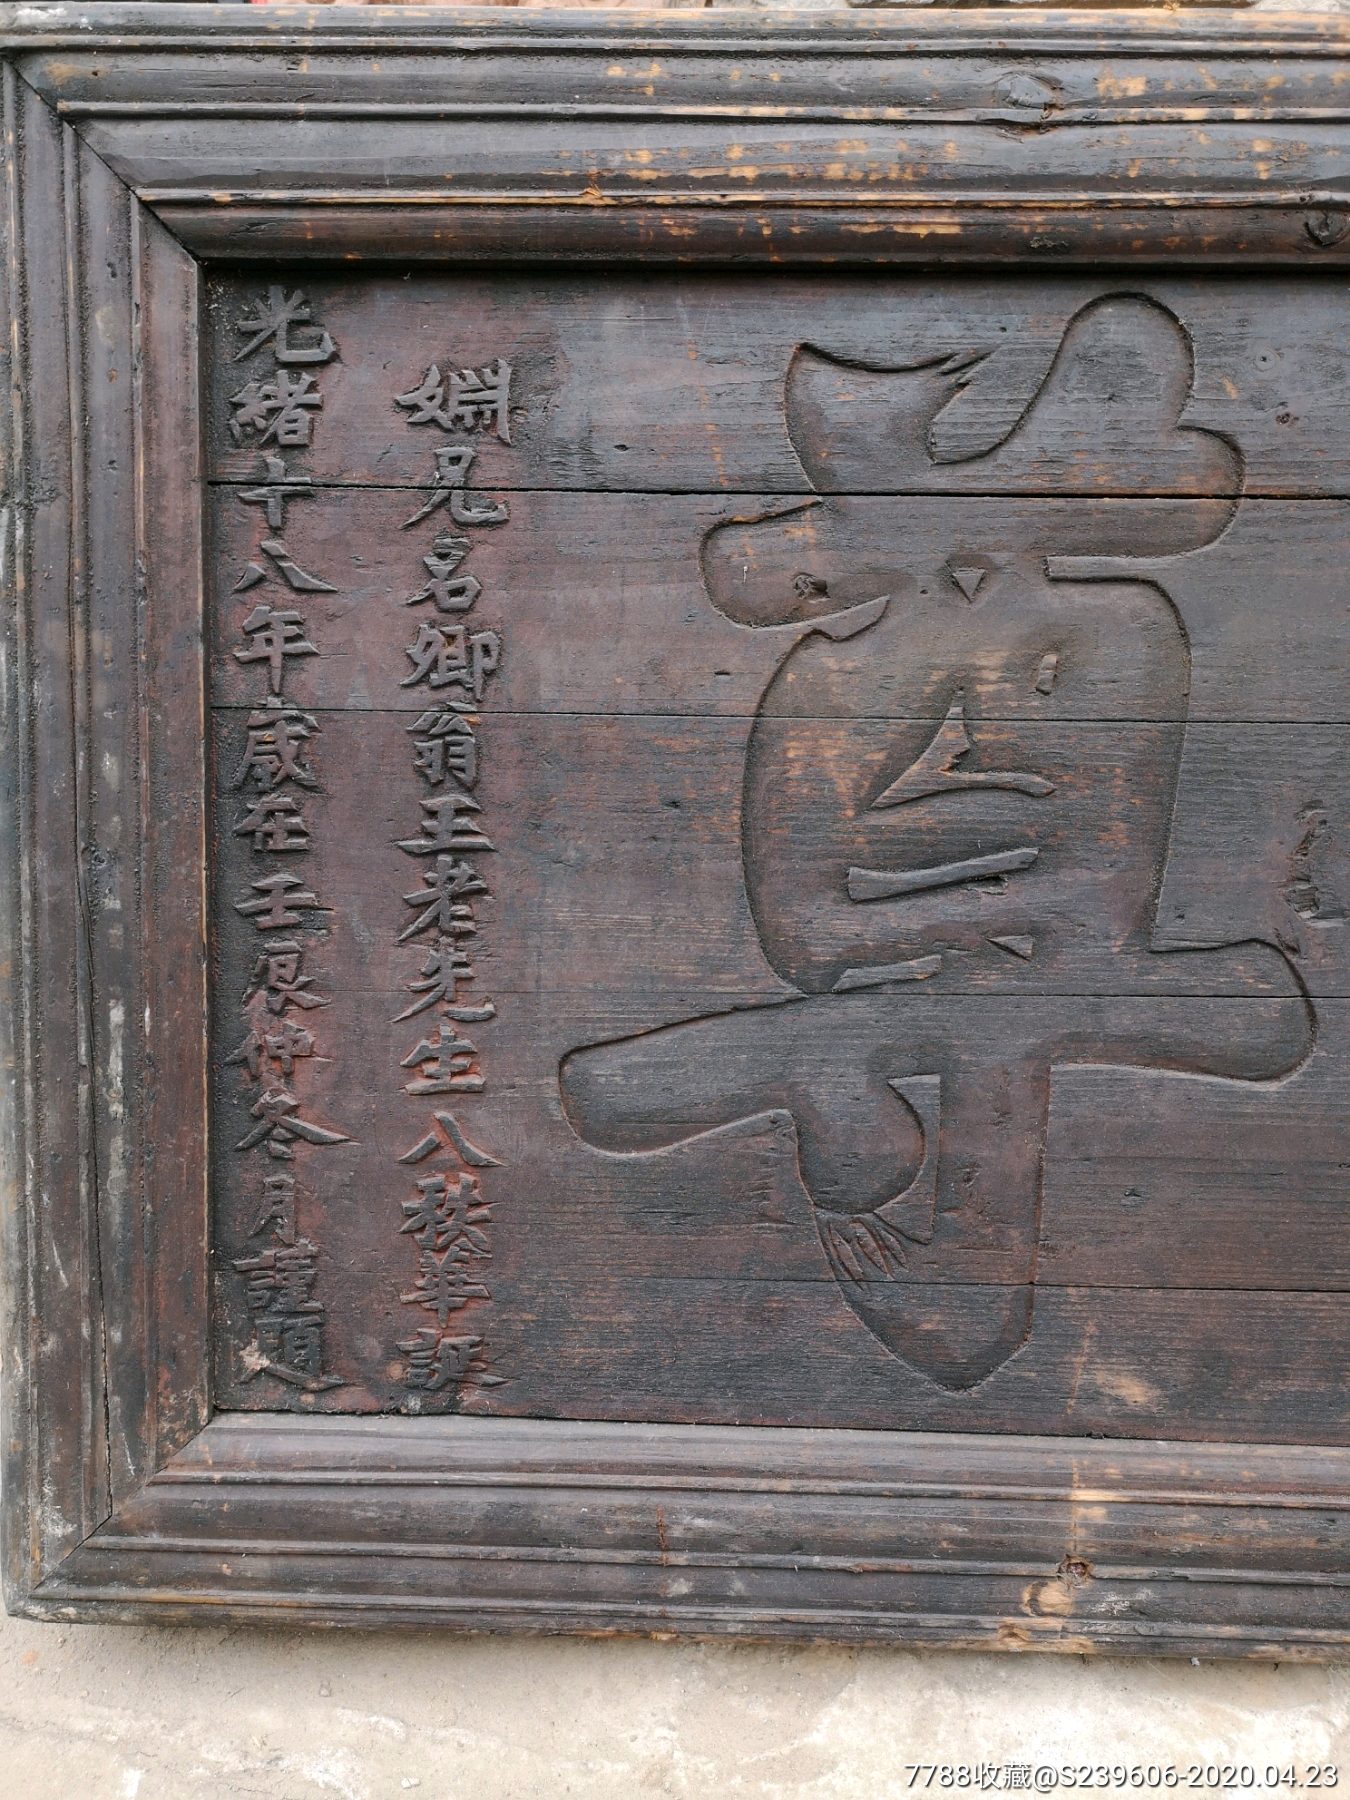 尊
婣兄名卿翁王老先生八秩華誕
光緒十八年歲在壬辰仲冬月謹題
7788收藏@S239606-2020.04.23